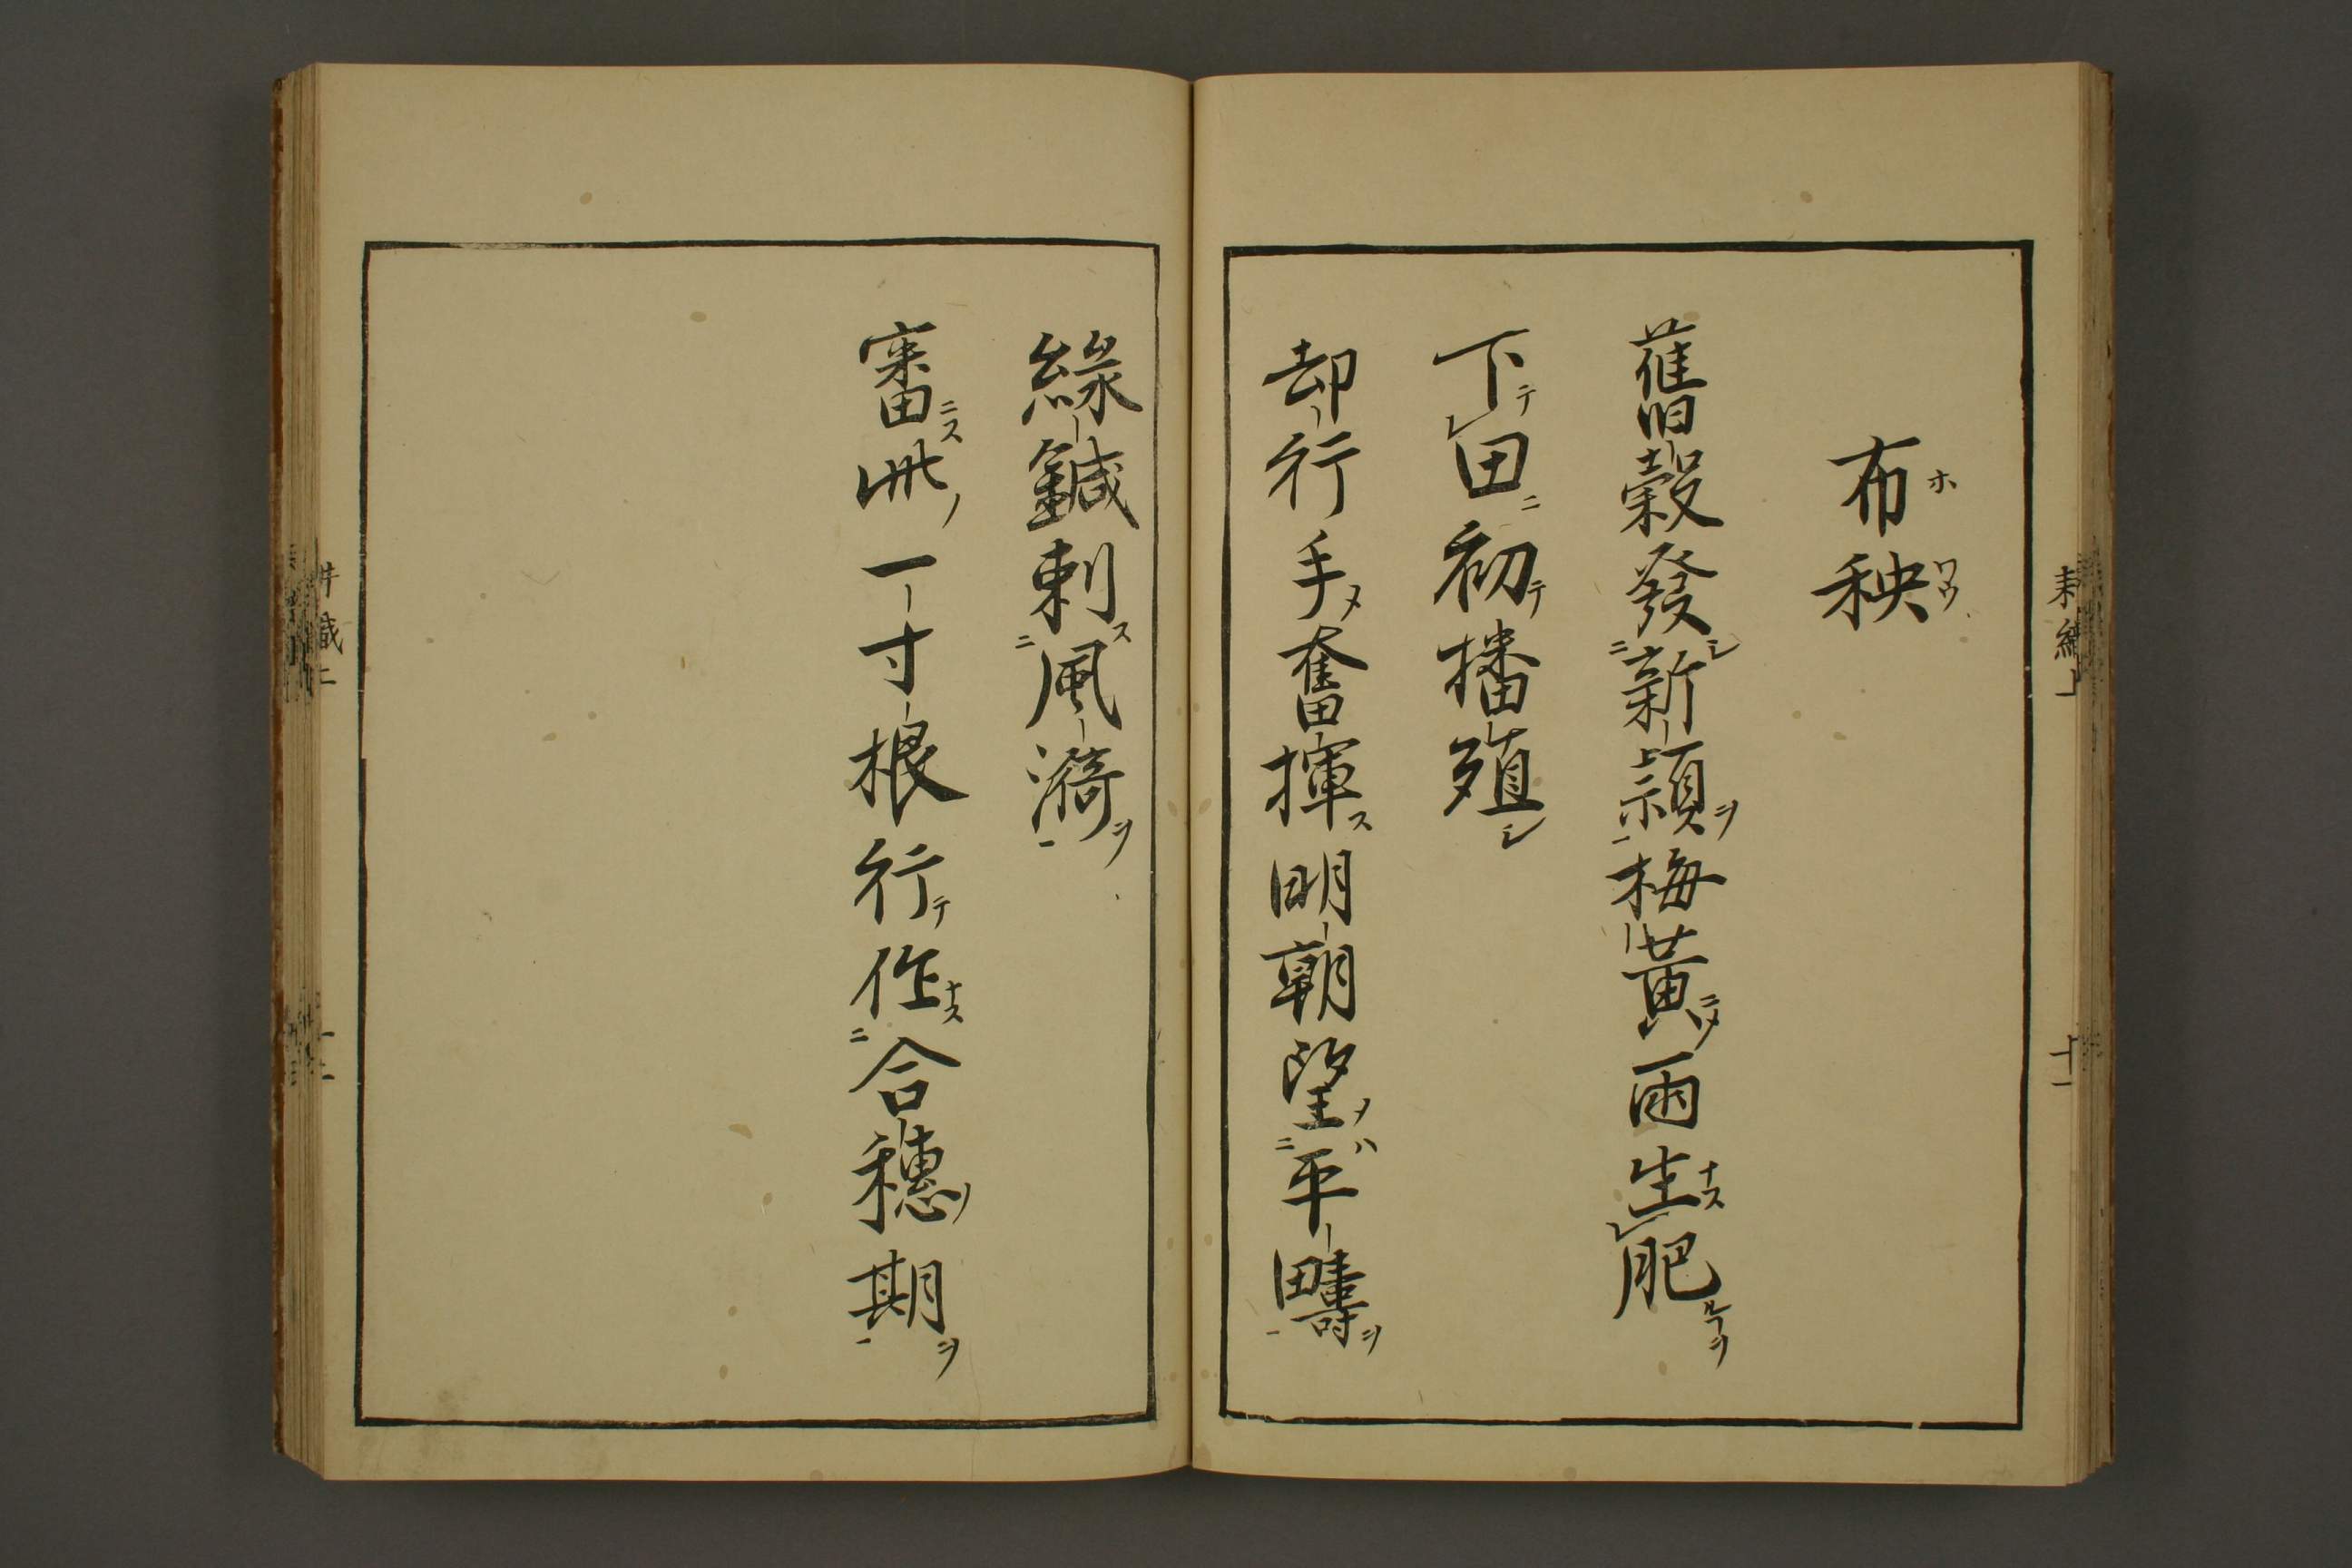 布秧
舊穀發新穎梅黃雨生肥
下田初播殖
却行手奮揮明朝望平疇
綠鍼刺風漪
審此一寸根行作合穗期